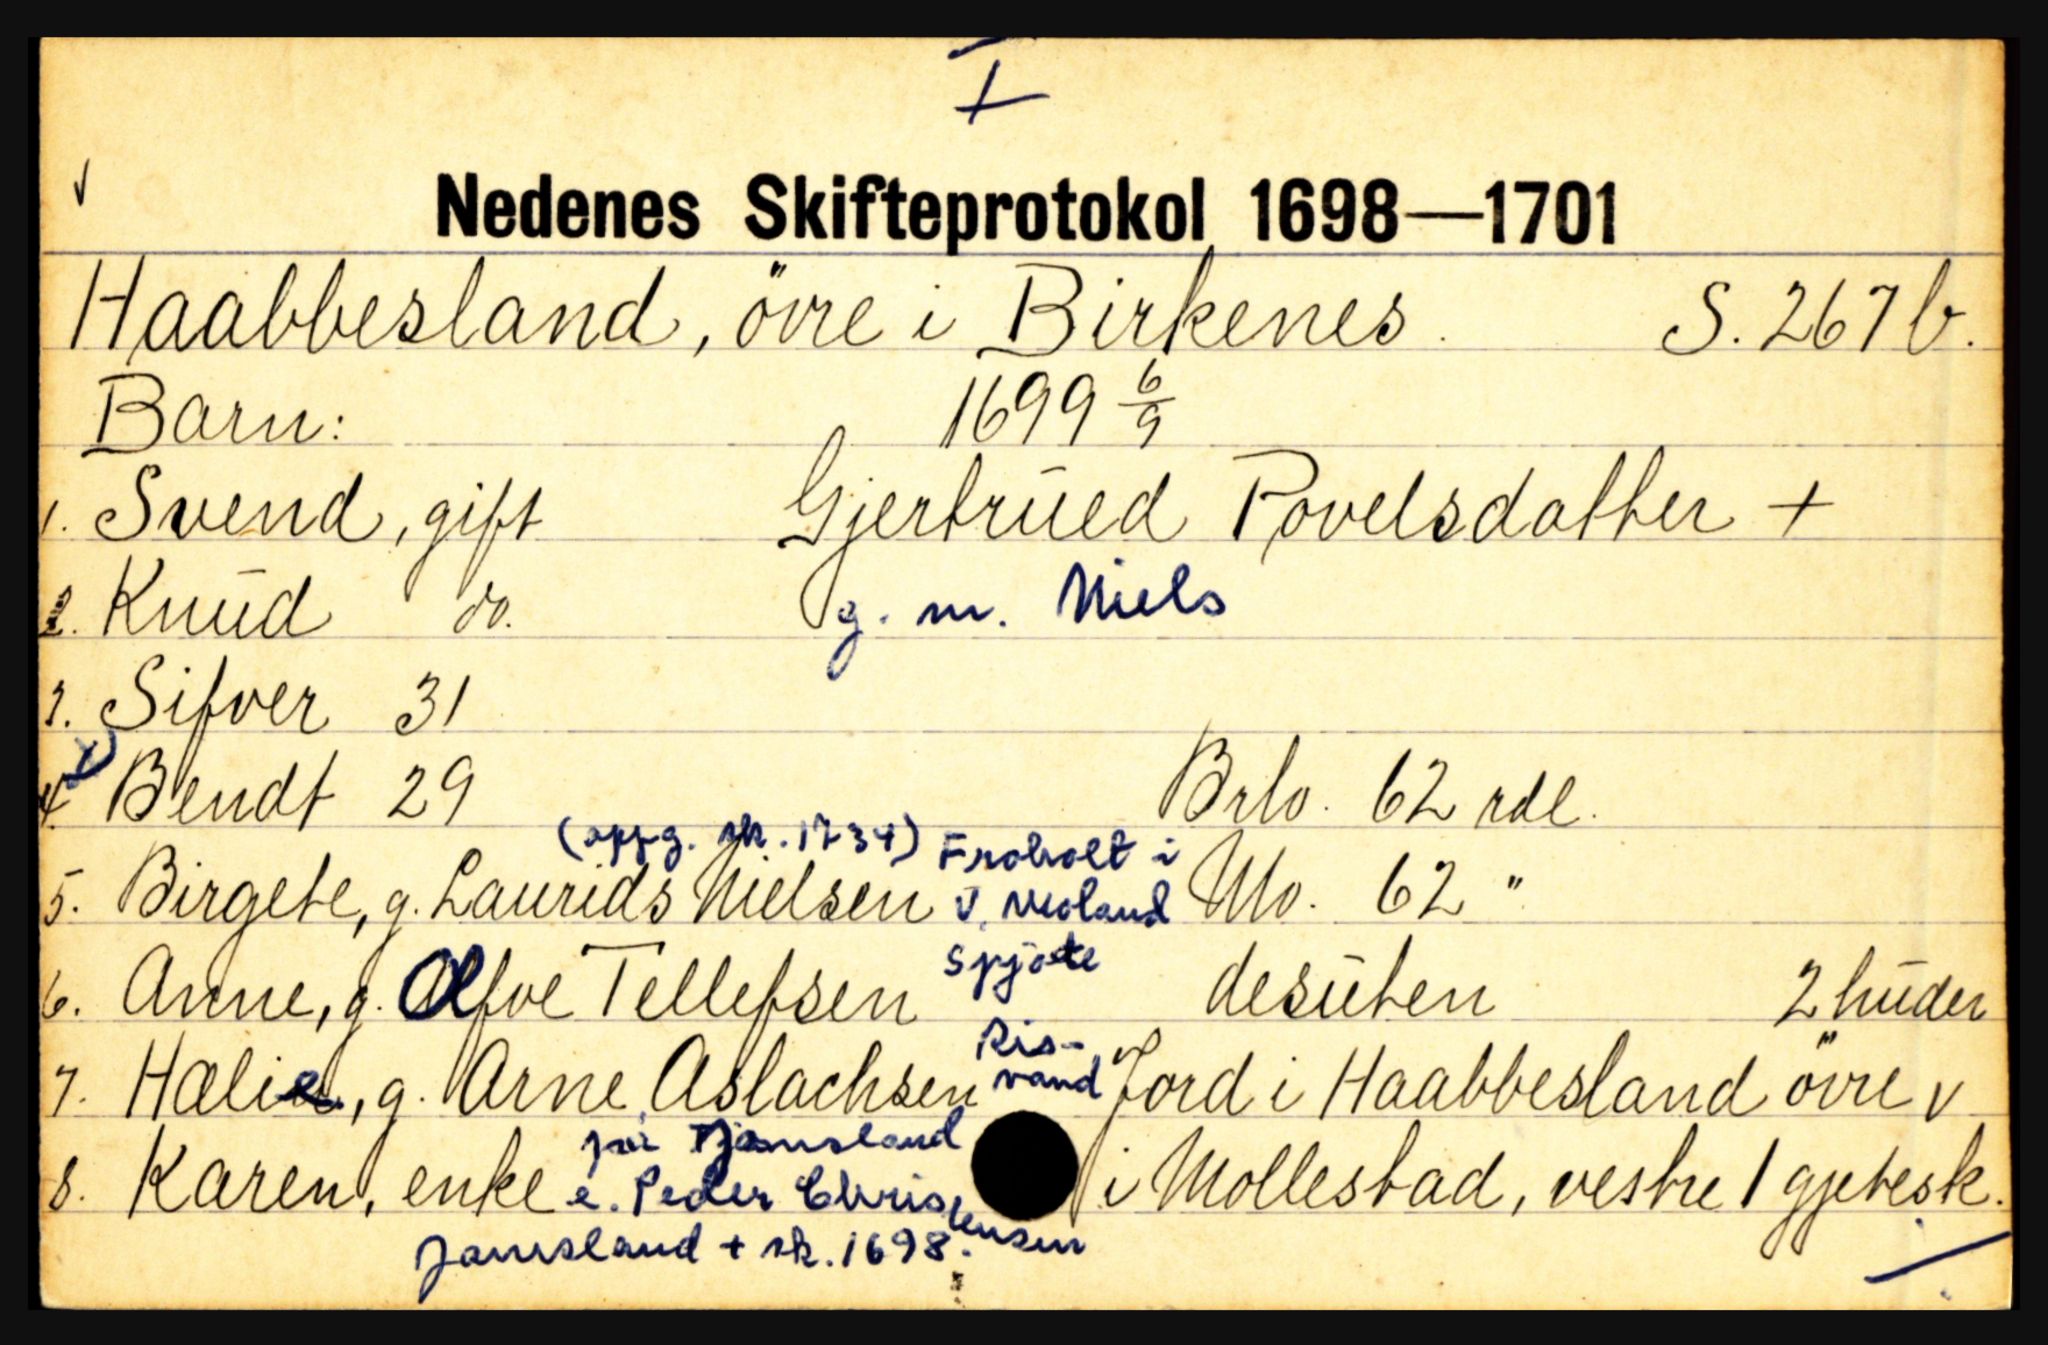 I
Nedenes Skifteprotokol 1698—1701
Haabbesland, övre i Birkenes. S. 267 b.
Barn: 1699 6/9
1. Svend, gift Gjertrūed Povelsdatter +
2. Knūd do. g. m. Niels
3. Sifver 31
4. Bendt 29 Brlo. 62 rdl.
(oppg. sk. 1734) Froholt i
5. Birgete, g. Laurids Nielsen V. Moland Mo. 62 "
Spjote
6. Anne, g. Olfve Tellefsen desūten 2 hūder
Ris-
7. Hælie, g. Arne Aslachsen vand Jord i Haabbesland övre v
på Tjamsland
8. Karen, enke e. Peder Christensen i Mollestad, vestre 1 gjetesk.
Jamsland + sk. 1698.